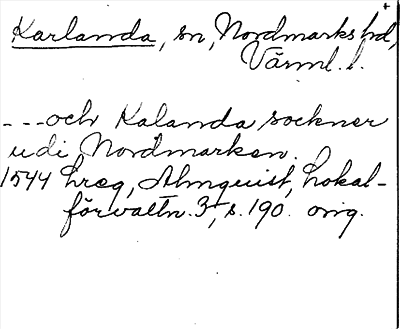 Karlanda, sn, Nordmarks hd,
Värml. l.
---och Kalanda sockner
udi Nordmarken.
1544 Lreg, Almquist, Lokal-
förvaltn. 3, s. 190. orig.